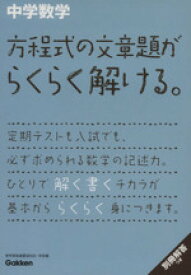 中学数学
方程式の文章題が
らくらく解ける。
定期テストも入試でも、
必ず求められる数学の記述力。
ひとりで解く書くチカラが
基本かららくらく身につきます。
別冊解答
Gakken